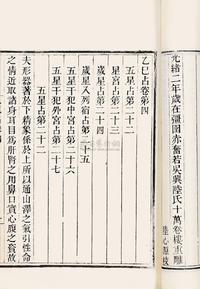 光緒二年歲在彊圉赤奮若吳興陸氏十萬卷樓重雕
陸心源校
乙巳占卷第四
五星占第二十二
星官占第二十三
歲星占第二十四
歲星入列宿占第二十五
五星干犯中官占第二十六
五星干犯外官占第二十七
五星占第二十二
夫形器著於下精象係於上所以通山澤之氣引性命
之情近取諸身耳目為肝腎之用鼻口實心腹之資故